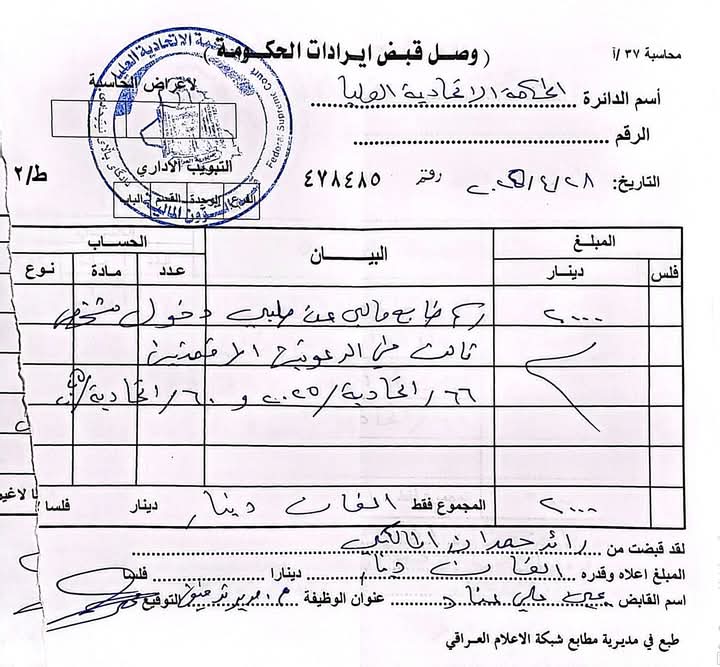 محاسبة ٣٧ /أ
( وصل قبض ايرادات الحكومة )
لاغراض الحاسبة
أسم الدائرة المحكمة الاتحادية العليا
الرقم
التبويب الاداري
التاريخ: ٢٨/٤/٢٠٢٥
٤٧٨٤٨٥
ط/٢
الفرع الوحدة القسم الباب
Federal Supreme Court
المبلغ البيـــان الحساب
فلس دينار عدد مادة نوع
٢٠٠٠ رسم طابع مالي عن طلبي دخول شخص
ثالث في الدعوتين المرقمتين
٦٦/اتحادية/٢٠٢٥ و ٦٠/اتحادية/٢٠٢٥
٢٠٠٠ المجموع فقط الفان دينار دينار فلسا لا غير
لقد قبضت من رائد حمدان المالكي
المبلغ اعلاه وقدره الفان دينار دينارا فلسا
اسم القابض علي عنوان الوظيفة التوقيع
طبع في مديرية مطابع شبكة الاعلام العراقي